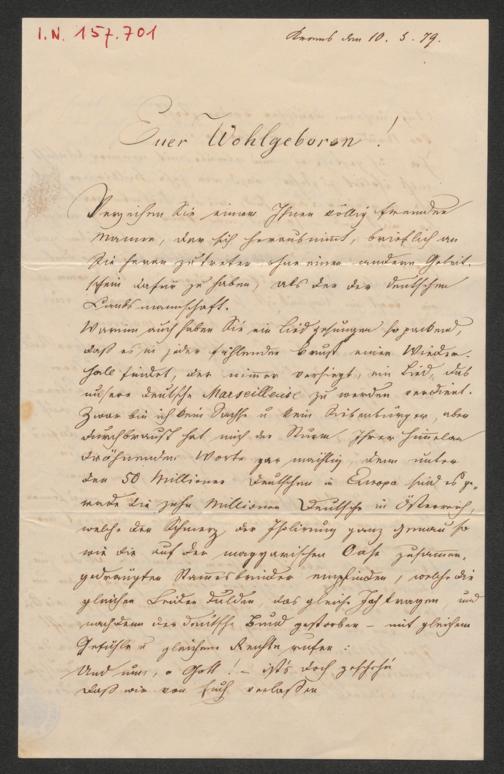 I.N. 157.701
Krems den 10. 3. 79.
Euer Wohlgeboren!
Verzeihen Sie einem Ihnen völlig fremden
Manne, der sich herausnimmt, brieflich an
Sie heran zu treten ohne einen andern Geleit-
schein dafür zu haben, als den der deutschen
Landsmannschaft.
Warum auch haben Sie ein Lied gesungen so packend,
daß es in jeder fühlenden Brust einen Wieder-
hall findet, der nimmer versiegt, ein Lied, das
unsere deutsche Marseillaise zu werden verdient.
Zwar bin ich kein Sachse u kein Siebenbürger, aber
durchbraust hat mich der Sturm Ihrer himmelan
dröhnenden Worte gar mächtig, denn unter
den 50 Millionen Deutschen in Europa sind es ge-
rade die zehn Millionen Deutsche in Österreich,
welche den Schmerz der Isolirung ganz genau so
wie die auf der magyarischen Oase zusammen-
gedrängten Stammesbrüder empfinden, welche die
gleichen Leiden dulden, das gleiche Joch tragen, und
nachdem der deutsche Bund gestorben – mit gleichem
Gefühle u gleichem Rechte rufen:
Und nun, o Gott! – ist's doch gescheh'
Daß wir von Euch verlassen